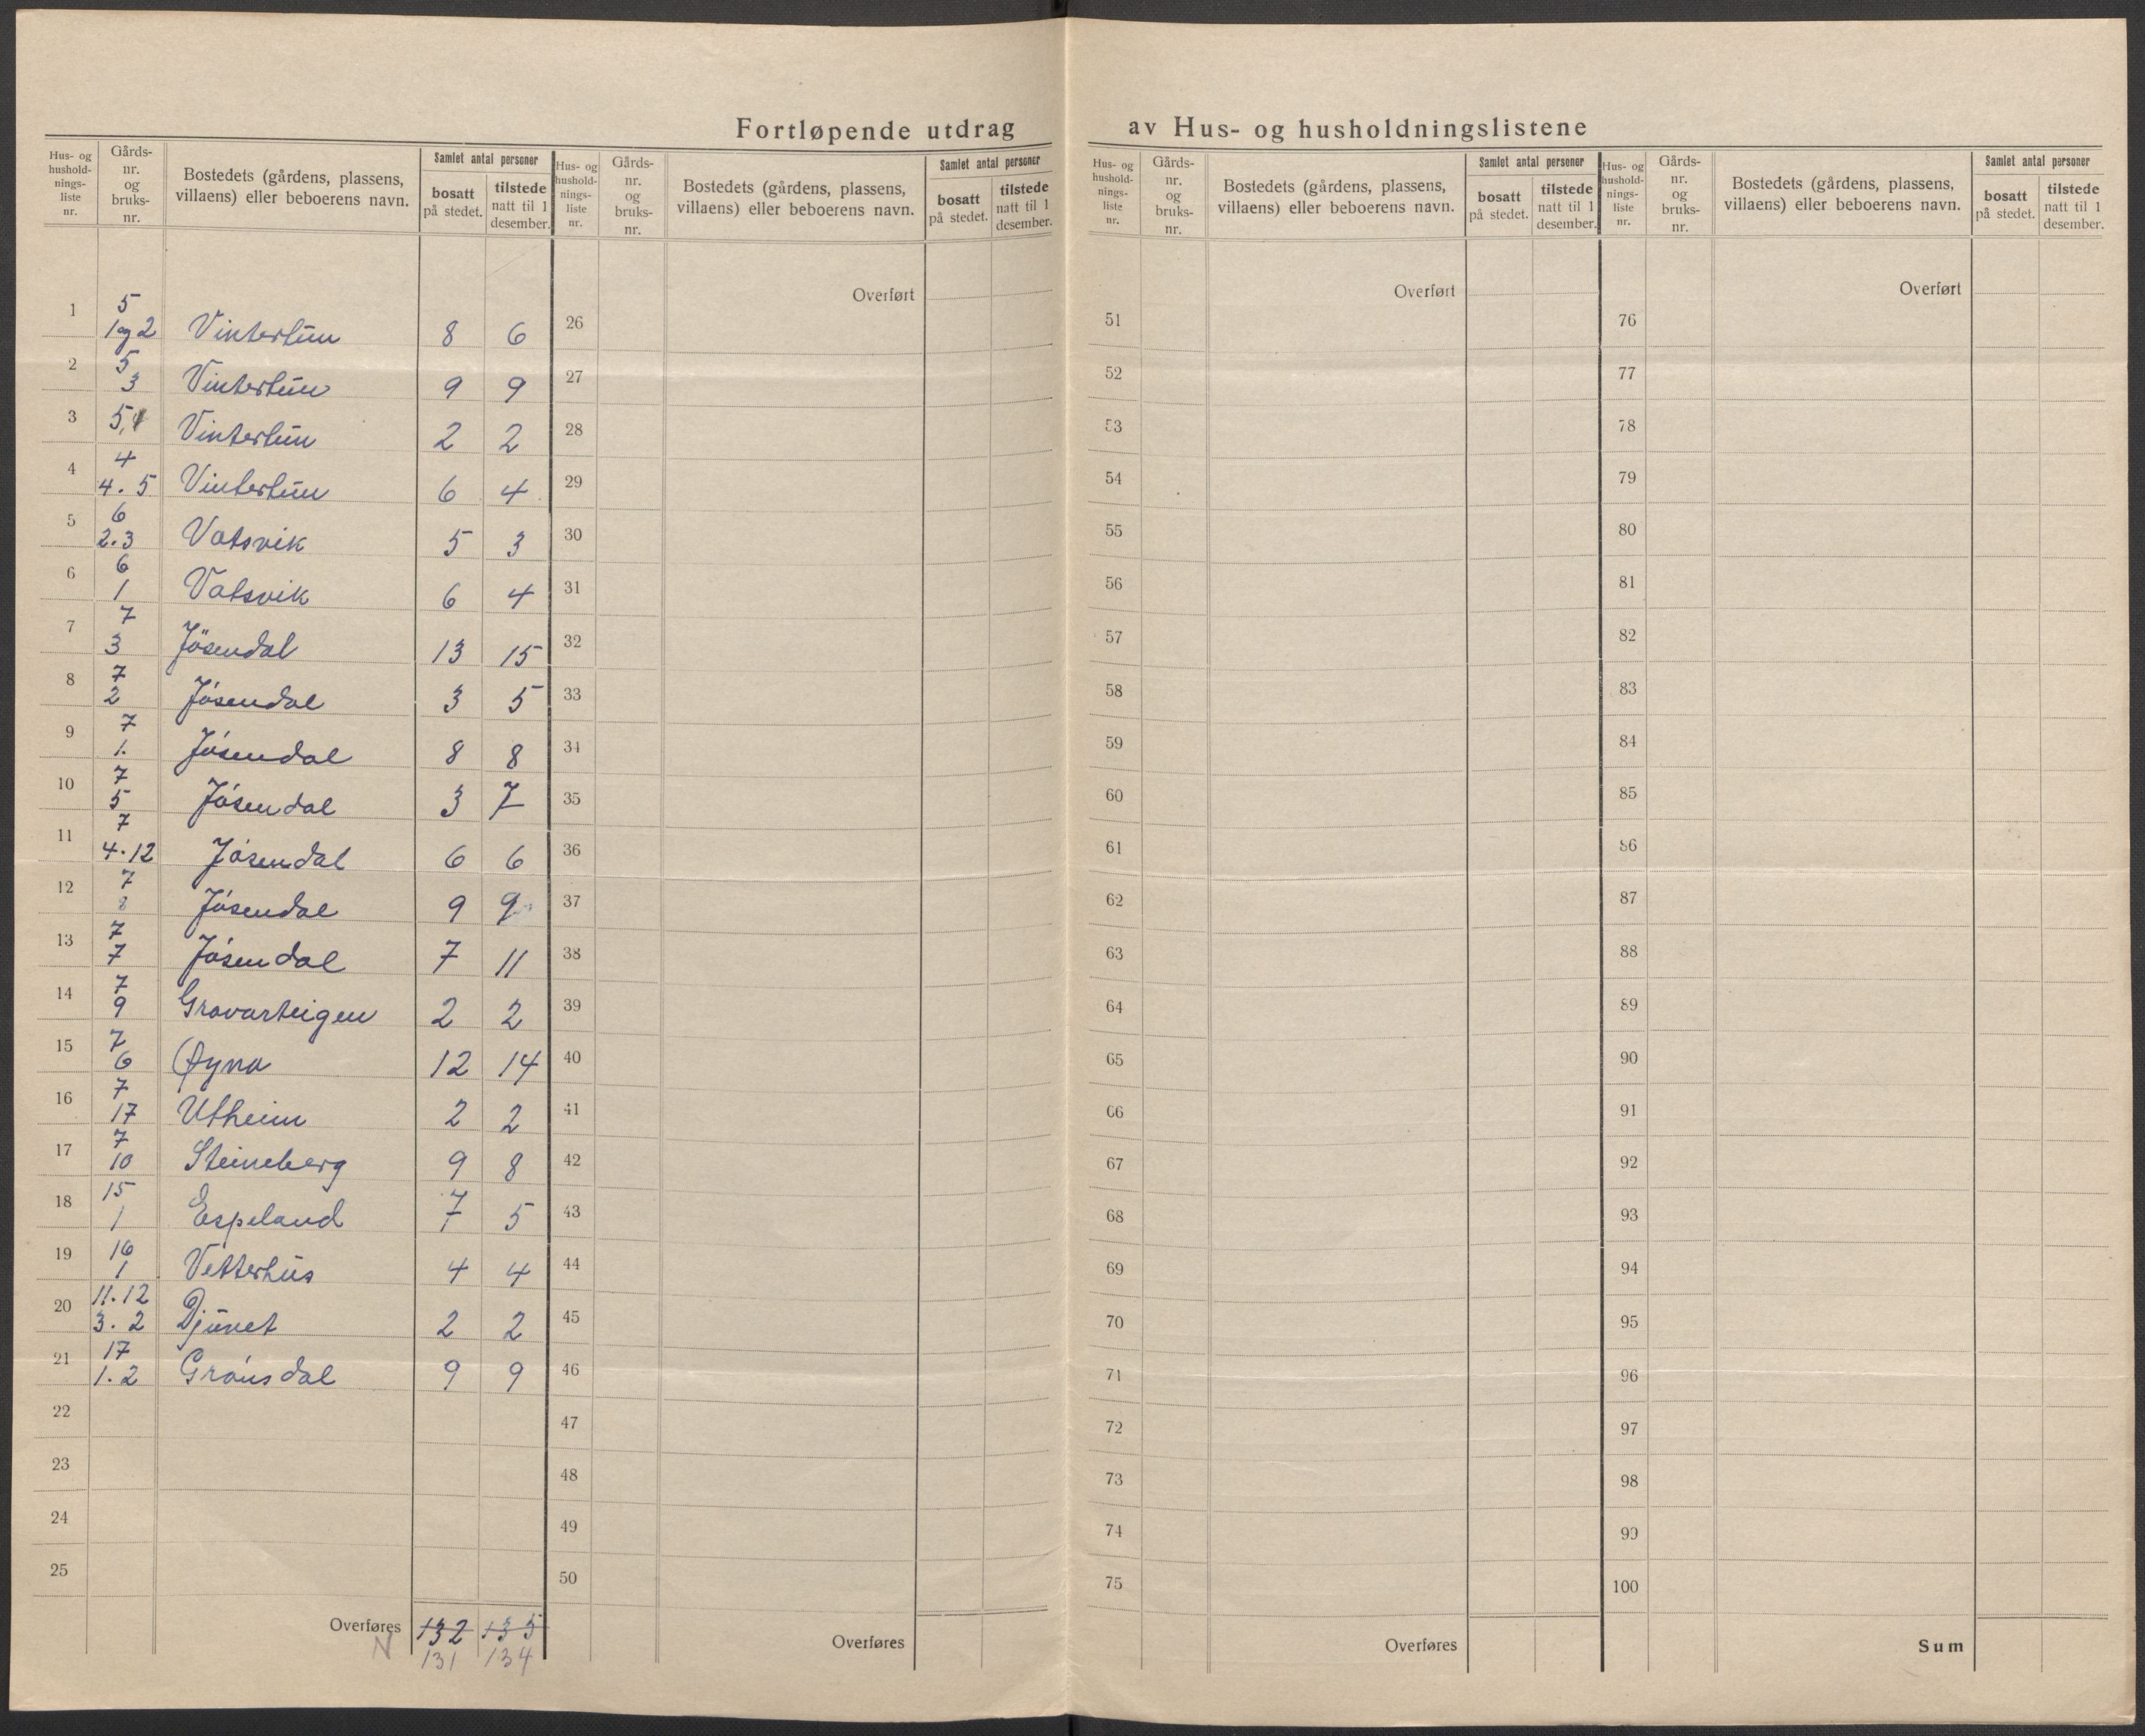 Fortløpende utdrag av Hus- og husholdningslistene
Hus- og hushold-nings-liste nr. Gårds-nr. og bruks-nr. Bostedets (gårdens, plassens, villaens) eller beboerens navn. Samlet antal personer bosatt på stedet. tilstede natt til 1 desember.
Hus- og hushold-nings-liste nr. Gårds-nr. og bruks-nr. Bostedets (gårdens, plassens, villaens) eller beboerens navn. Samlet antal personer bosatt på stedet. tilstede natt til 1 desember.
Hus- og hushold-nings-liste nr. Gårds-nr. og bruks-nr. Bostedets (gårdens, plassens, villaens) eller beboerens navn. Samlet antal personer bosatt på stedet. tilstede natt til 1 desember.
Hus- og hushold-nings-liste nr. Gårds-nr. og bruks-nr. Bostedets (gårdens, plassens, villaens) eller beboerens navn. Samlet antal personer bosatt på stedet. tilstede natt til 1 desember.
Overført Overført Overført
1 5 1 og 2 Vintertun 8 6 26 51 76
2 5 3 Vintertun 9 9 27 52 77
3 5,4 Vintertun 2 2 28 53 78
4 4 4. 5 Vintertun 6 4 29 54 79
5 6 2.3 Vatsvik 5 3 30 55 80
6 6 1 Vatsvik 6 4 31 56 81
7 7 3 Jösendal 13 15 32 57 82
8 7 2 Jósendal 3 5 33 58 83
9 7 1. Jósendal 8 8 34 59 84
10 7 5 Jósendal 3 7 35 60 85
11 7 4.12 Jósendal 6 6 36 61 86
12 7 8 Jósendal 9 9 37 62 87
13 7 7 Jósendal 7 11 38 63 88
14 7 9 Gravarteigen 2 2 39 64 89
15 7 6 Øyna 12 14 40 65 90
16 7 17 Utheim 2 2 41 66 91
17 7 10 Steineberg 9 8 42 67 92
18 15 1 Espeland 7 5 43 68 93
19 16 1 Vetterhus 4 4 44 69 94
20 11.12 3. 2 Djúvet 2 2 45 70 95
21 17 1.2 Grónsdal 9 9 46 71 96
22 47 72 97
23 48 73 98
24 49 74 99
25 50 75 100
Overføres 132 135 Overføres Overføres Sum
N 131 134